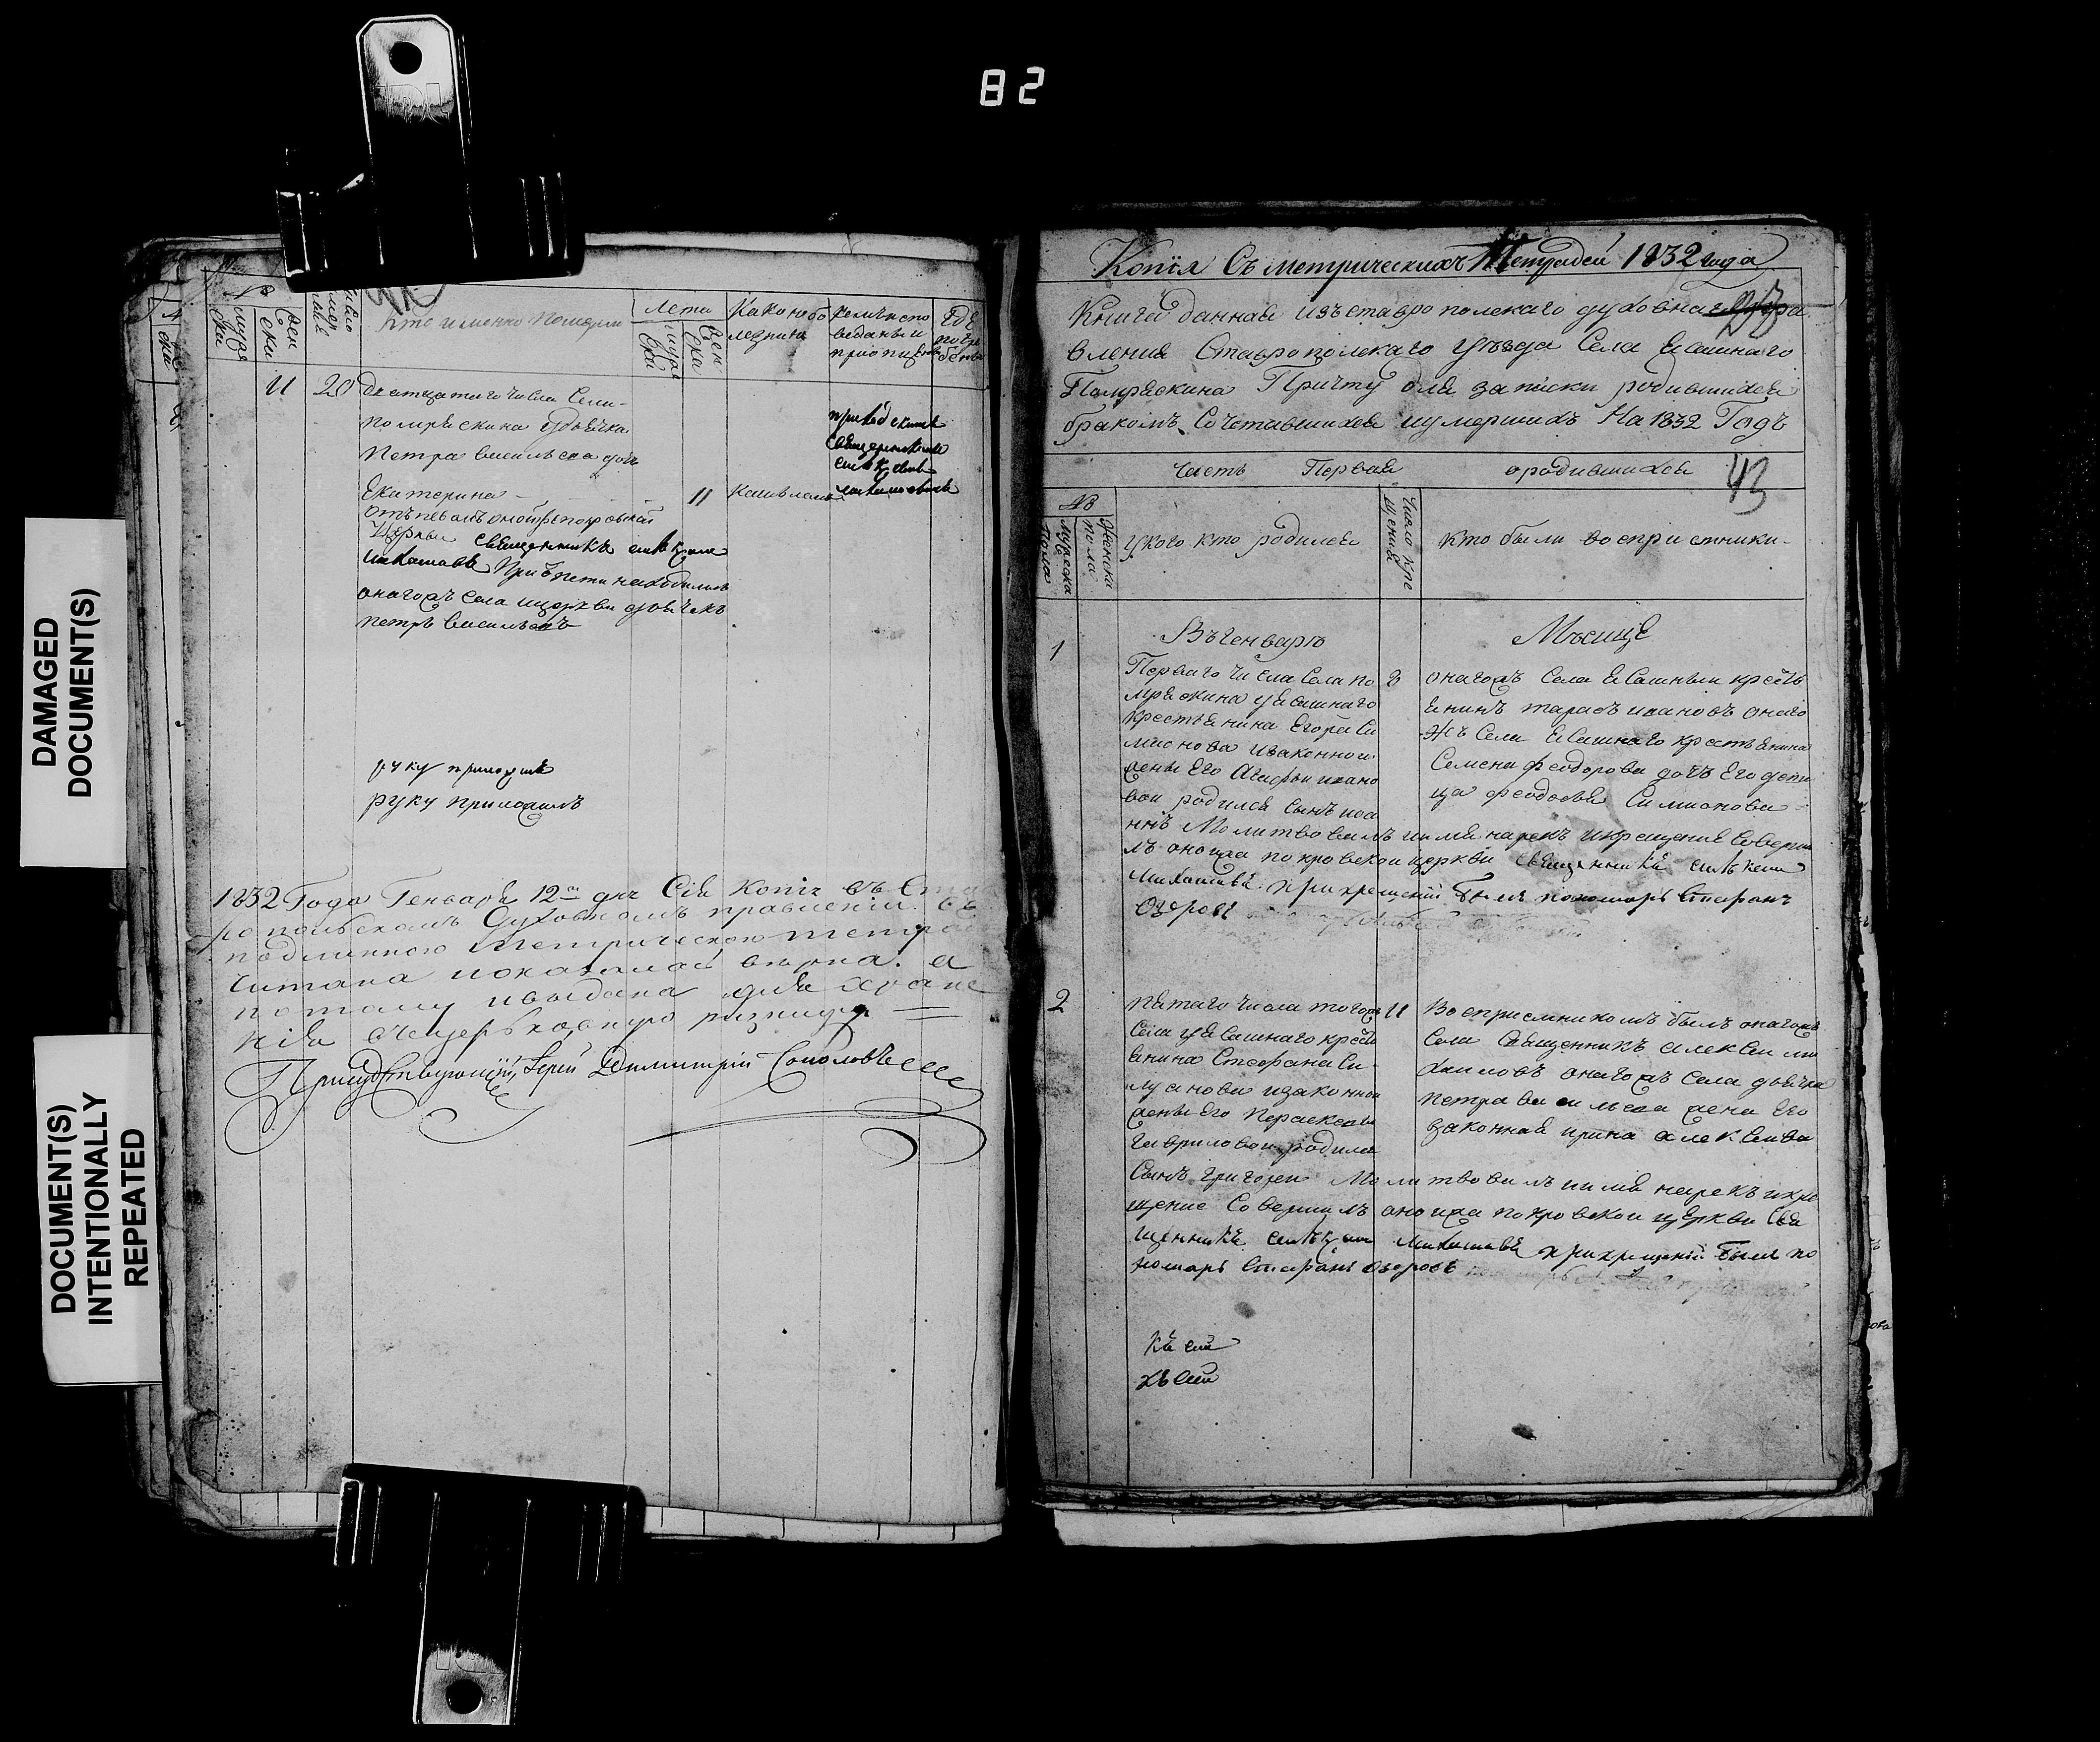 82
DAMAGED
DOCUMENT(S)
DOCUMENT(S)
INTENTIONALLY
REPEATED
№
Кто именно померли
лета
Какою бо
лезнию
Кемъ испо
веданы и
приобщены
Где
погре
бены
11 20 Дватцатаго числа Села
Помряскина дьячка
Петра Васильева дочь
Екатерина 11 Кашлемъ
приходскимъ
священникомъ
отъпевалъ оной покровской
Церкви священникъ
При отпети находился
онагожъ Села церкви дьячекъ
петръ Васильевъ
руку приложилъ
руку приложилъ
1832 Года Генваря 12 дня Сiя Копiя въ Ста
ропольскомъ Духовномъ правленiи съ
подлинною Метрическою тетра
читана и оказалась верна, а
потому и выдана для хране
нiя въ церьковную ризницу
Присудствующiй Iерей Димитрiй Соколовъ
Копiя Съ метрическихъ Тетрадей 1832 года
Книга данная изъ ставропольскаго духовнаго пра
вления Ставропольскаго уъзда Села Ясашнаго
Помряскина Причту для записки родившихся
бракомъ Сочетавшихся и умершихъ На 1832 Годъ
43
Часть Первая о родившихся
№
Мужеска
пола
Женска
пола
У кого кто родился
Число кре
щения
Кто были восприемники
Въ Генваръ Мъсяцъ
1 Перваго числа Села по
мряскина уясашнаго
крестьянина Егора Си
мионова и законной
жены Его Агафьи ивано
вой родился сынъ иоа
ннъ Молитвовалъ и имя нарекъ и крещение Соверши
лъ оногожа покровской церкви священникъ Алексей
Михаиловъ при крещенiй былъ пономарь Стефанъ
Озеровъ
онагожъ Села Ясашный крестья
янинъ тарасъ ивановъ онаго
жъ Села Ясашнаго крестьянина
Семена феодорова дочь Его деви
ца феодосья Симионова
2 пятаго числа тогожъ 11
Села уясашнаго кресть
янина Стефана Си
муанова и законной
жены Его Параскевы
гавриловой родился
Сынъ григорей Молитвовалъ и имя нарекъ и кре
щение Совершилъ оногожа покровской церкви Свя
щенникъ Алексей Михаиловъ при крещенiй былъ по
номарь Стефанъ Озеровъ
Восприемникомъ былъ онагожъ
Села Священникъ алексеи ми
хаиловъ онагожъ села дьячка
петра васильева жена Его
законная ирина алексеива